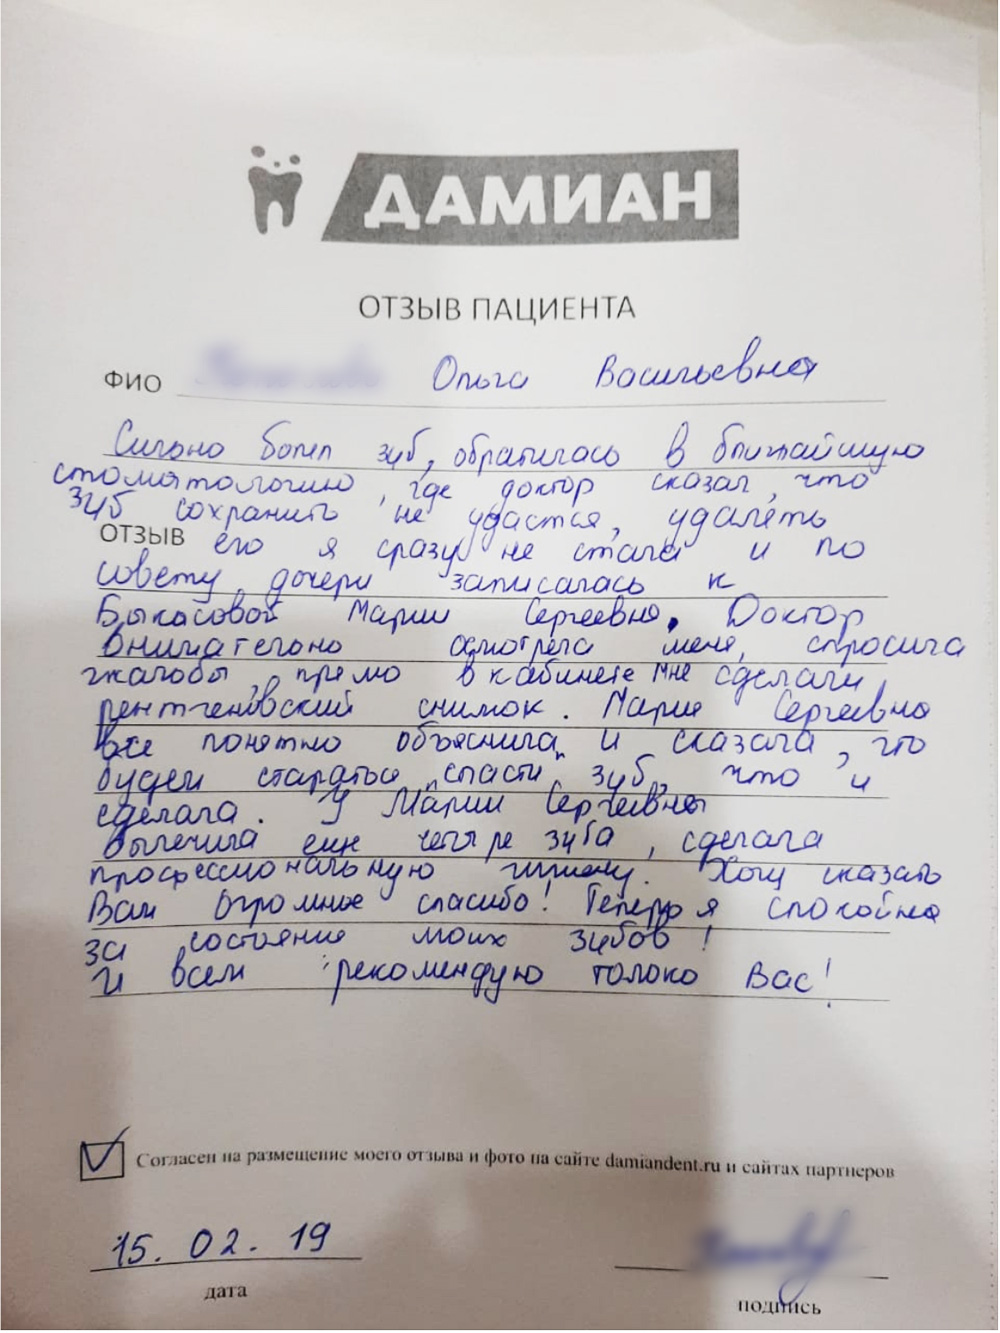 ДАМИАН
ОТЗЫВ ПАЦИЕНТА
ФИО Ольга Васильевна
Сильно болел зуб, обратилась в ближайшую
стоматологию, где доктор сказал, что
зуб сохранить не удастся, удалять
ОТЗЫВ его я сразу не стала и по
совету дочери записалась к
Быкасовой Марии Сергеевне. Доктор
внимательно осмотрела меня, спросила
жалобы, прямо в кабинете мне сделали
рентгеновский снимок. Мария Сергеевна
все понятно объяснила и сказала, что
будем стараться спасти зуб, что и
сделала. У Марии Сергеевны
вылечила еще четыре зуба, сделала
профессиональную гигиену. Хочу сказать
Вам огромное спасибо! Теперь я спокойна
за состояние моих зубов!
И всем рекомендую только Вас!
Согласен на размещение моего отзыва и фото на сайте damiandent.ru и сайтах партнеров
15. 02. 19
дата
подпись